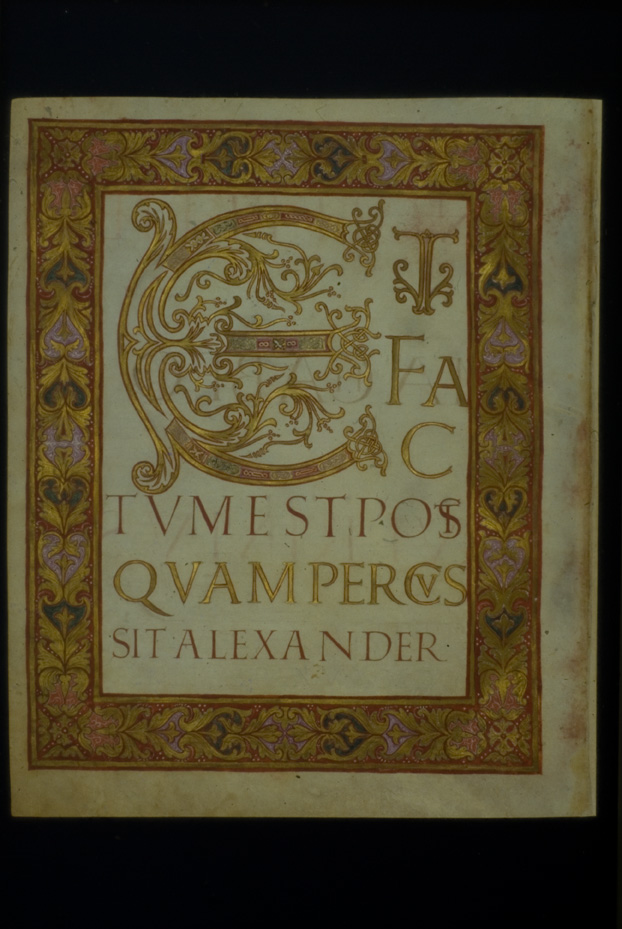 ET
FA
C
TVM EST POST
QVAM PERCVS
SIT ALEXANDER